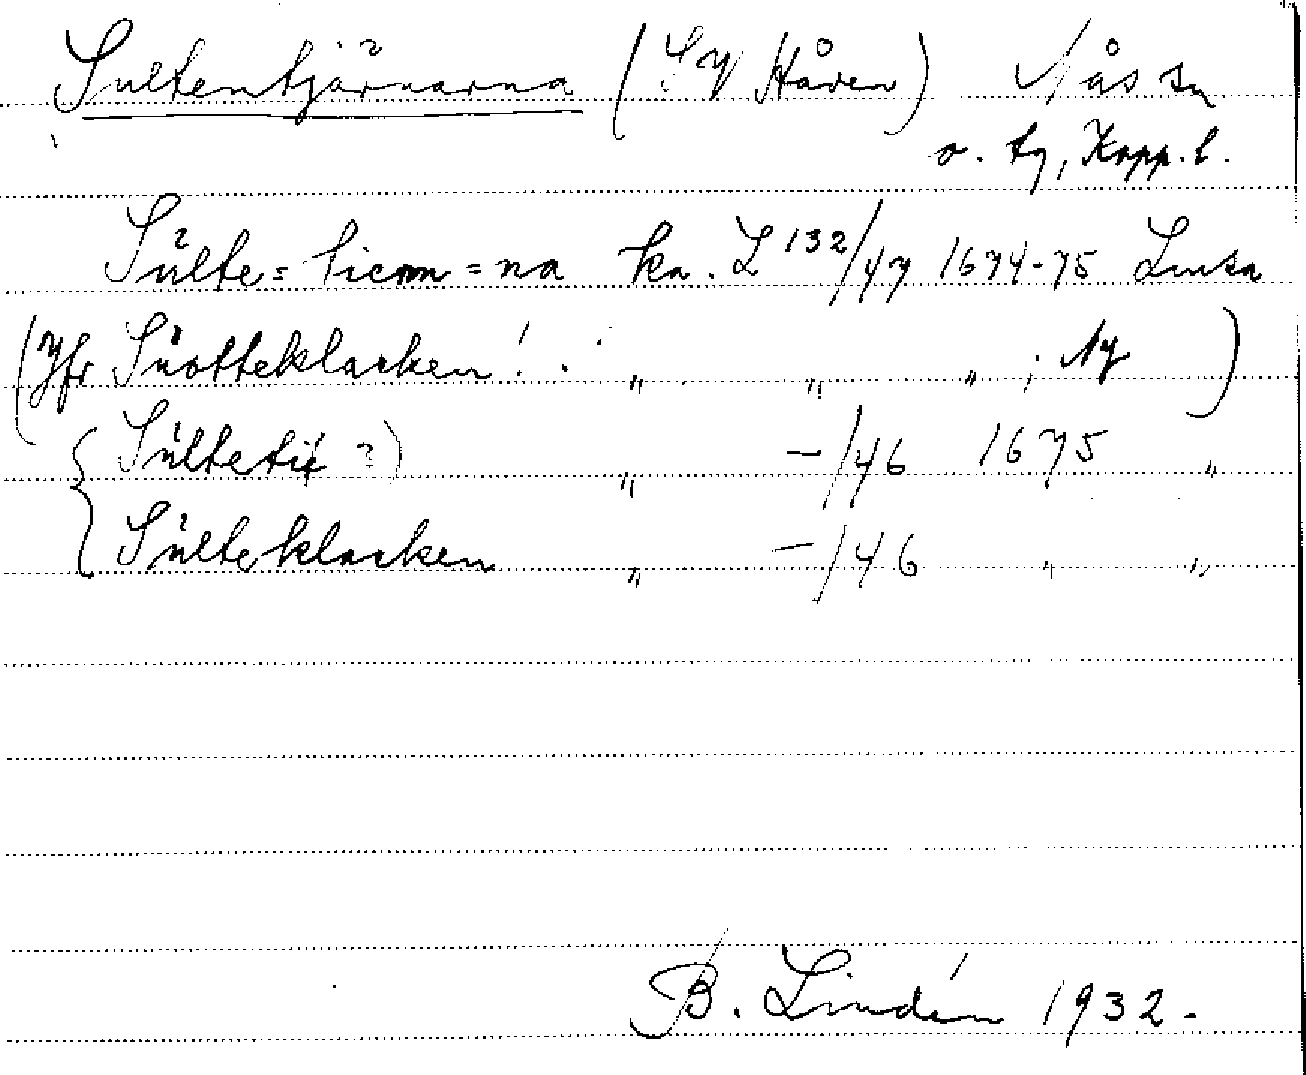 Sultentjärnarna (SV Håven) Nås sn
o. tg, Kopp. l.
Sůlte=tiern=na ka. L 132/47 1674-75 Lmsa
(Jfr Sůotteklacken! . „ „ „ ; Ny)
{ Sůltetié ?) „ —/46 1675 „
Sůlteklacken „ —/46 „ „
B. Lindén 1932.